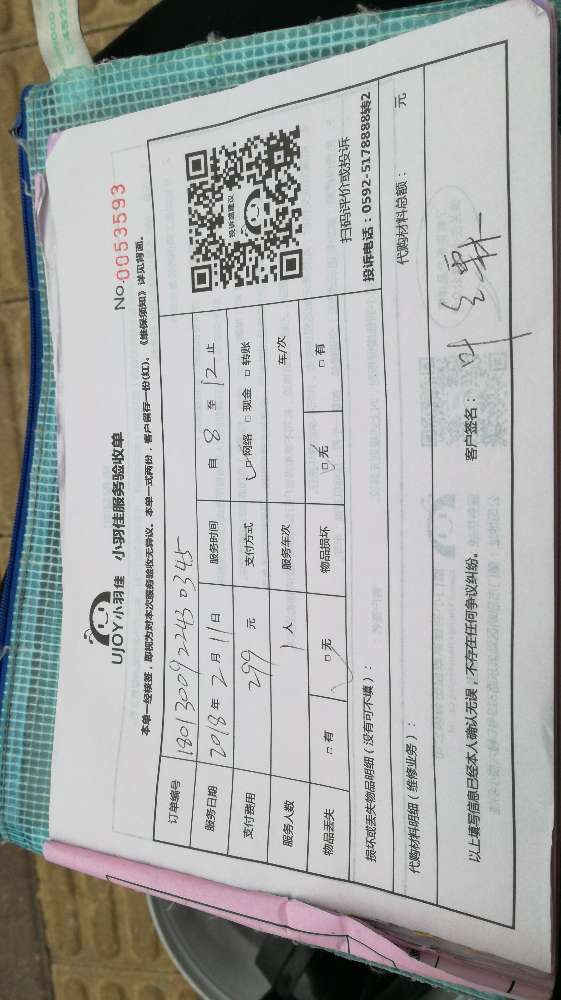 UJOY小羽佳 小羽佳服务验收单
No.0053593
本单一经核签，即视为对本次服务验收无异议。本单一式两份，客户留存一份(红)。《维保须知》详见背面。
订单编号 18013009224303 45
服务日期 2018年2月11日 服务时间 自 8 至 12 止
支付费用 299 元 支付方式 □网络 □现金 □转账
服务人数 1人 服务车次 车/次
物品丢失 □有 □无 物品损坏 □无 □有
投诉或建议
扫码评价或投诉
投诉电话：0592-5178888转2
损坏或丢失物品明细（没有可不填）：
代购材料明细（维修业务）： 代购材料总额： 元
以上填写信息已经本人确认无误，不存在任何争议纠纷。 客户签名：